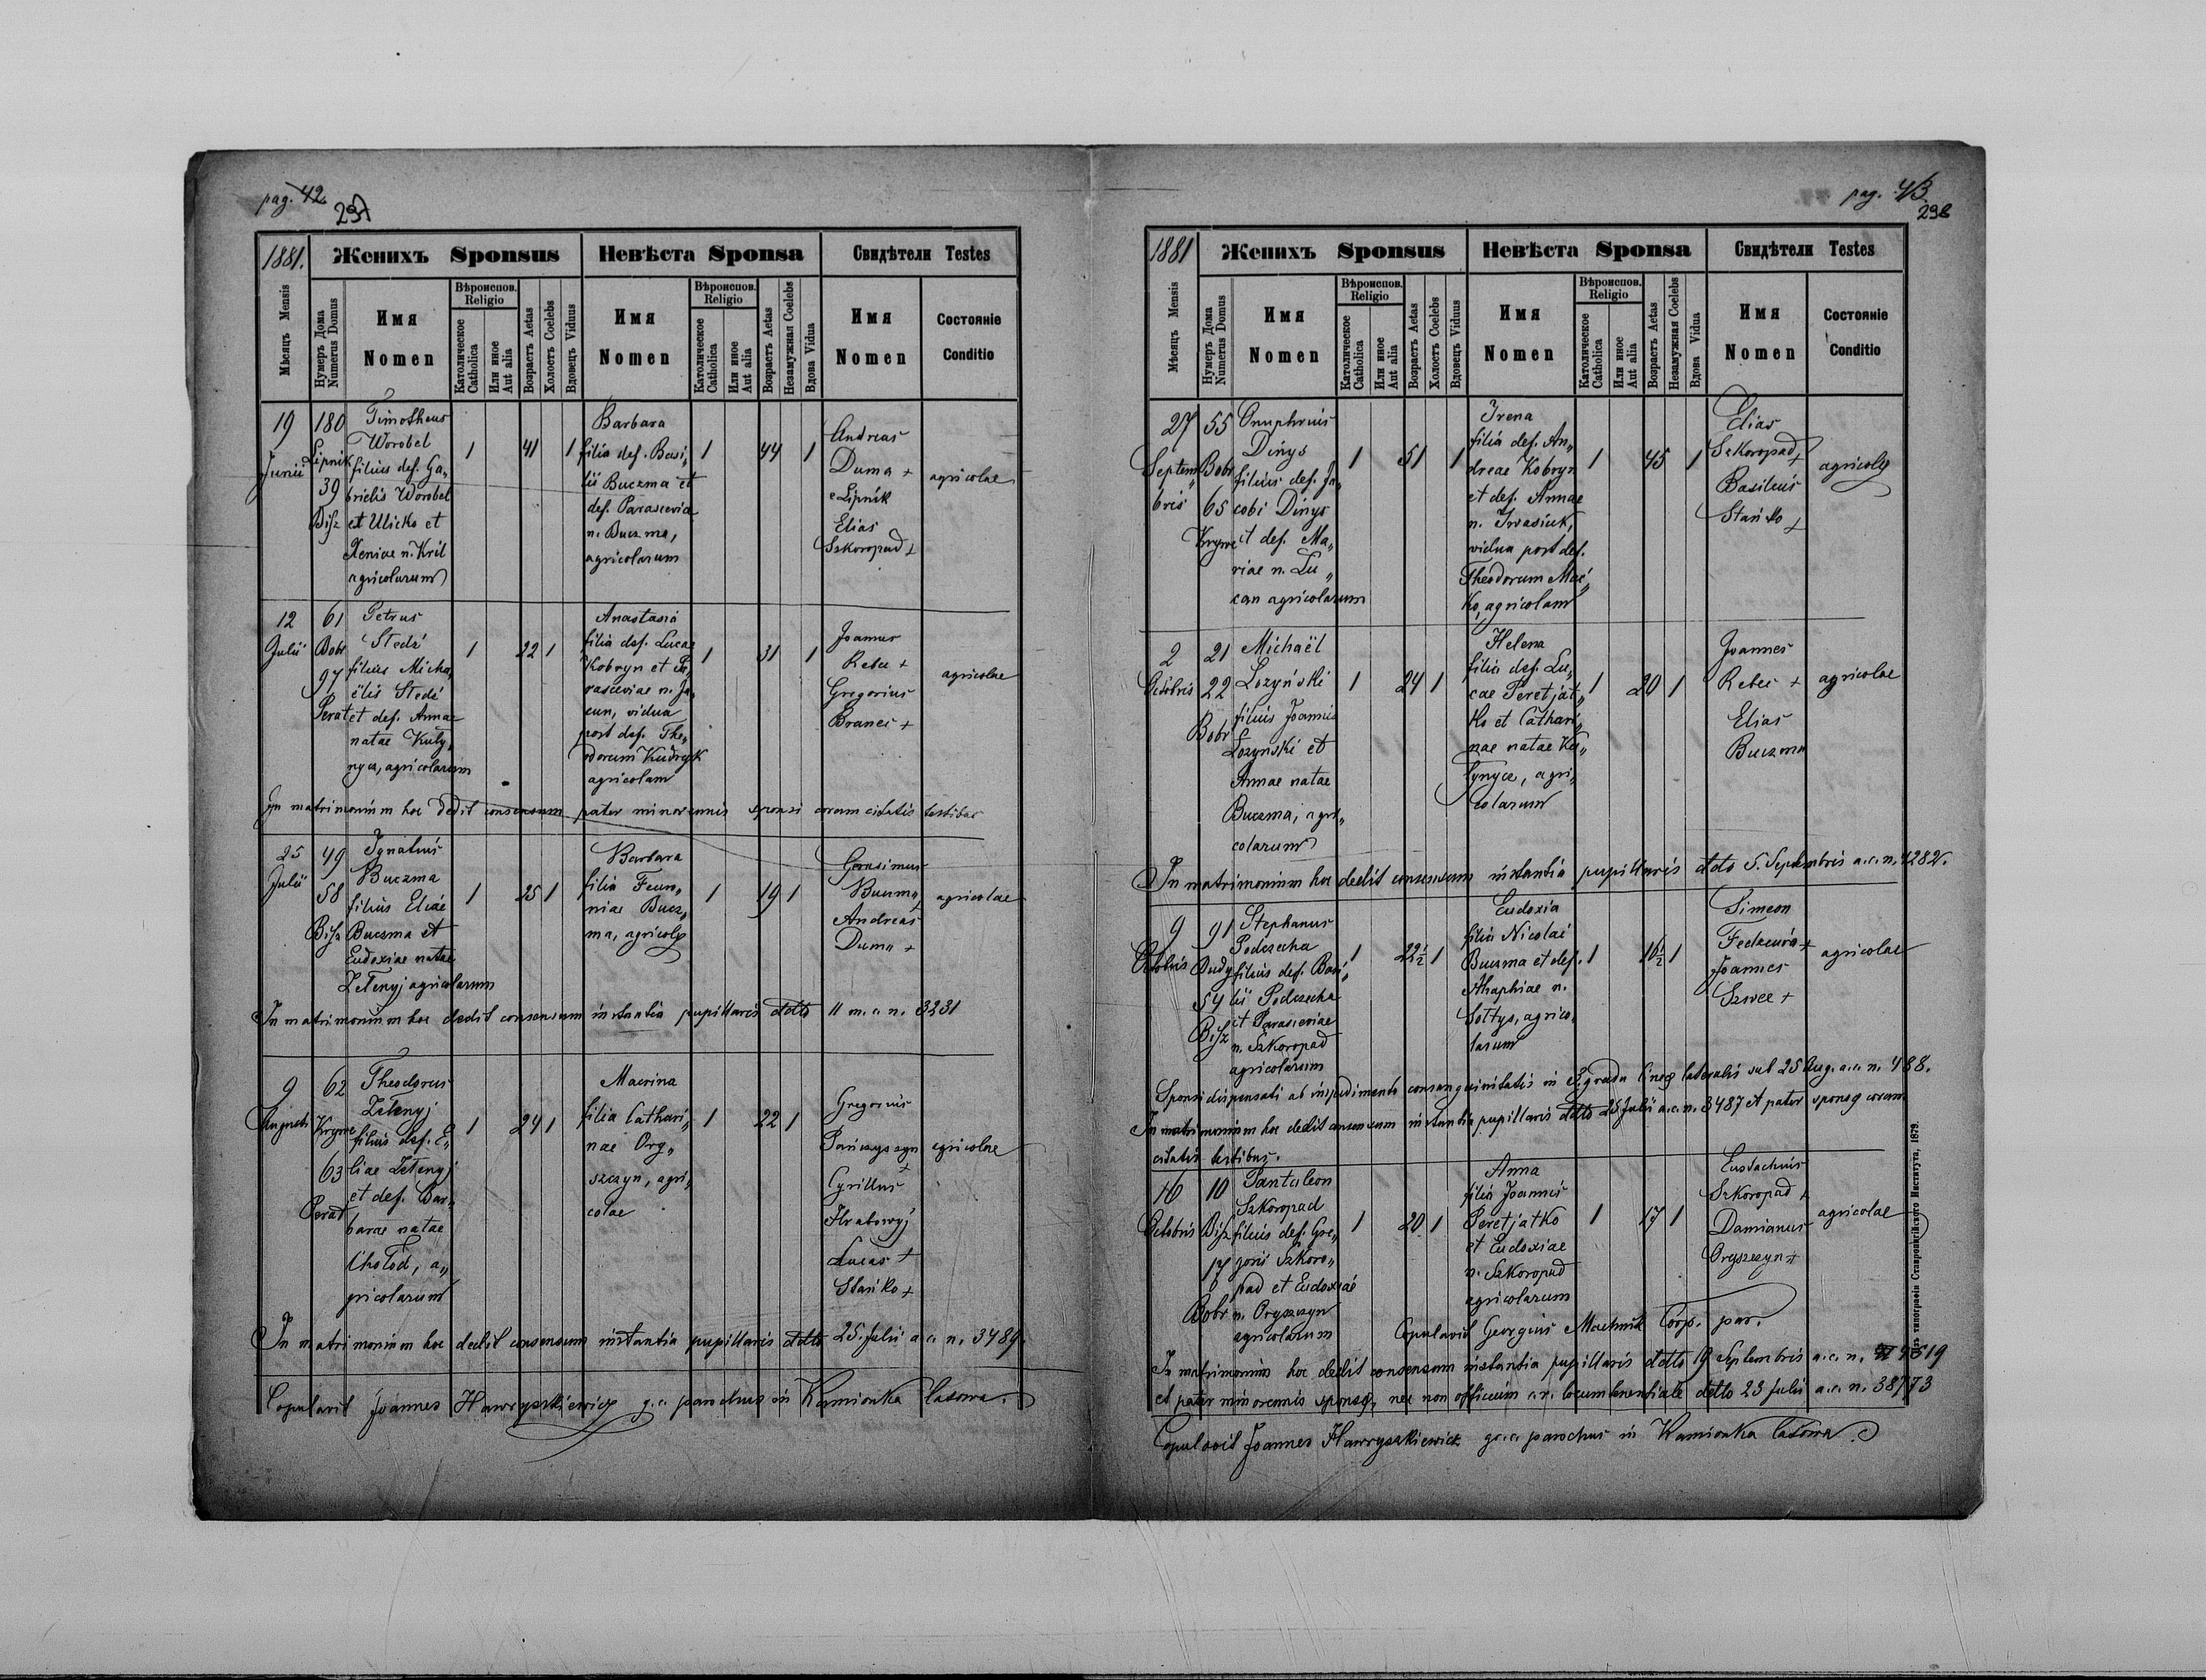 pag. 42
237
1881.
Женихъ Sponsus
Невѣста Sponsa
Свидѣтели Testes
Мѣсяцъ Mensis
Нумеръ Дома
Numerus Domus
Имя
Nomen
Вѣроиспов.
Religio
Католическое
Catholica
Или иное
Aut alia
Возрастъ Aetas
Холостъ Coelebs
Вдовецъ Viduus
Имя
Nomen
Вѣроиспов.
Religio
Католическое
Catholica
Или иное
Aut alia
Возрастъ Aetas
Незамужная Coelebs
Вдова Vidua
Имя
Nomen
Состояніе
Conditio
19
Junii
180
Lipnik
39
Bisz
Timotheus
Worobel
filius def. Ga„
brielis Worobel
et Ulicko et
Xeniae n. Kril
agricolarum
1
41
1
Barbara
filia def. Basi„
lii Buczma et
def. Parasceviae
n. Buczma,
agricolarum
1
44
1
Andreas
Duma +
e Lipnik
Elias
Szkoropad +
agricolae
12
Julii
61
Bobr
97
Perat
Petrus
Stedi
filius Micha„
ëlis Stedi
et def. Annae
natae Kuly„
nycz, agricolarum
1
22
1
Anastasia
filia def. Lucae
Kobryn et Pa„
rasceviae n. Ja„
cun, vidua
post def. The„
odorum Kudryk
agricolam
1
31
1
Joannes
Rebec +
Gregorius
Braner +
agricolae
In matrimonium hoc dedit consensum pater minorennis sponsi coram citatis testibus
25
Julii
49
58
Bisz
Ignatius
Buczma
filius Eliae
Buczma et
Eudoxiae natae
Zełenyj agricolarum
1
25
1
Barbara
filia Feun„
niae Bucz„
ma, agricolae
1
19
1
Gerasimus
Buczma +
Andreas
Duma +
agricolae
In matrimonium hoc dedit consensum instantia pupillaris ddto 11 m. c. n. 3231
9
Augusti
62
Krywe
63
Perat
Theodorus
Zełenyj
filius def. E„
liae Zełenyj
et def. Bar„
barae natae
Chołod, a„
gricolarum
1
24
1
Macrina
filia Cathari„
nae Ory„
szczyn, agri„
colae
1
22
1
Gregorius
Pańczyszyn
+
Cyrillus
Hrabowyj
Lucas +
Stańko +
agricolae
In matrimonium hoc dedit consensum instantia pupillaris ddto 25. Julii a. c. n. 3489.
Copulavit Joannes Hawryszkiewicz g. c. parochus in Kamionka lasowa.
pag. 43
238
1881
Женихъ Sponsus
Невѣста Sponsa
Свидѣтели Testes
Мѣсяцъ Mensis
Нумеръ Дома
Numerus Domus
Имя
Nomen
Вѣроиспов.
Religio
Католическое
Catholica
Или иное
Aut alia
Возрастъ Aetas
Холостъ Coelebs
Вдовецъ Viduus
Имя
Nomen
Вѣроиспов.
Religio
Католическое
Catholica
Или иное
Aut alia
Возрастъ Aetas
Незамужная Coelebs
Вдова Vidua
Имя
Nomen
Состояніе
Conditio
27
Septem„
bris
55
Bobr
65
Krywe
Onuphrius
Dinys
filius def. Ja„
cobi Dinys
et def. Ma„
riae n. Lu„
can agricolarum
1
51
1
Irena
filia def. An„
dreae Kobryn
et def. Annae
n. Iwasiuk,
vidua post def.
Theodorum Mać„
ko, agricolam
1
45
1
Elias
Szkoropad +
Basilius
Stańko +
agricolae
2
Octobris
21
22
Bobr
Michaël
Lozyński
filius Joannis
Lozynski et
Annae natae
Buczma, agri„
colarum
1
24
1
Helena
filia def. Lu„
cae Peretjat„
ko et Cathari„
nae natae Ku„
łynycz, agri„
colarum
1
20
1
Joannes
Rebec +
Elias
Buczma
agricolae
In matrimonium hoc dedit consensum instantia pupillaris ddto 5. Septembris a. c. n. 4282.
9
Octobris
91
Rudy
54
Bisz
Stephanus
Podczecha
filius def. Basi„
lii Podczecha
et Parasceviae
n. Szkoropad
agricolarum
1
22½
1
Eudoxia
filia Nicolai
Buczma et def.
Ahaphiae n.
Sołtys, agrico„
larum
1
16½
1
Simeon
Fedzeura +
Joannes
Szwec +
agricolae
Sponsi dispensati ab impedimento consanguinitatis in 3. gradu lineae lateralis sub 25 Aug. a. c. n. 488.
In matrimonium hoc dedit consensum instantia pupillaris ddto 25 Julii a. c. n. 3487 et pater sponsae coram
citatis testibus.
16
Octobris
10
Bisz
17
Bobr
Pantaleon
Szkoropad
filius def. Gre„
gorii Szkoro„
pad et Eudoxiae
n. Oryszczyn
agricolarum
1
20
1
Anna
filia Joannis
Peretjatko
et Eudoxiae
n. Szkoropad
agricolarum
1
17
1
Eustachius
Szkoropad +
Damianus
Oryszczyn +
agricolae
Copulavit Georgius Machnik Coop. par.
In matrimonium hoc dedit consensum instantia pupillaris ddto 19 Septembris a. c. n. 4519
et pater minorennis sponsae, nec non officium c. r. locumtenentiale ddto 23 Julii a. c. n. 38773
Copulavit Joannes Hawryszkiewicz gr. c. parochus in Kamionka lasowa.
типографіи Ставропигійского Института, 1879.